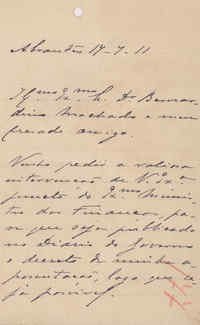 Abrantes 17-7-11
Exmo. Sr. Dr. Bernar-
dino Machado e meu
presado amigo.
Venho pedir a valiosa
intervenção de V. Exª
junto do Exmo Minis-
tro das finanças, pa-
ra que seja publicado
no Diario do Governo
o decreto da minha a-
posentação, logo que se-
ja possivel.